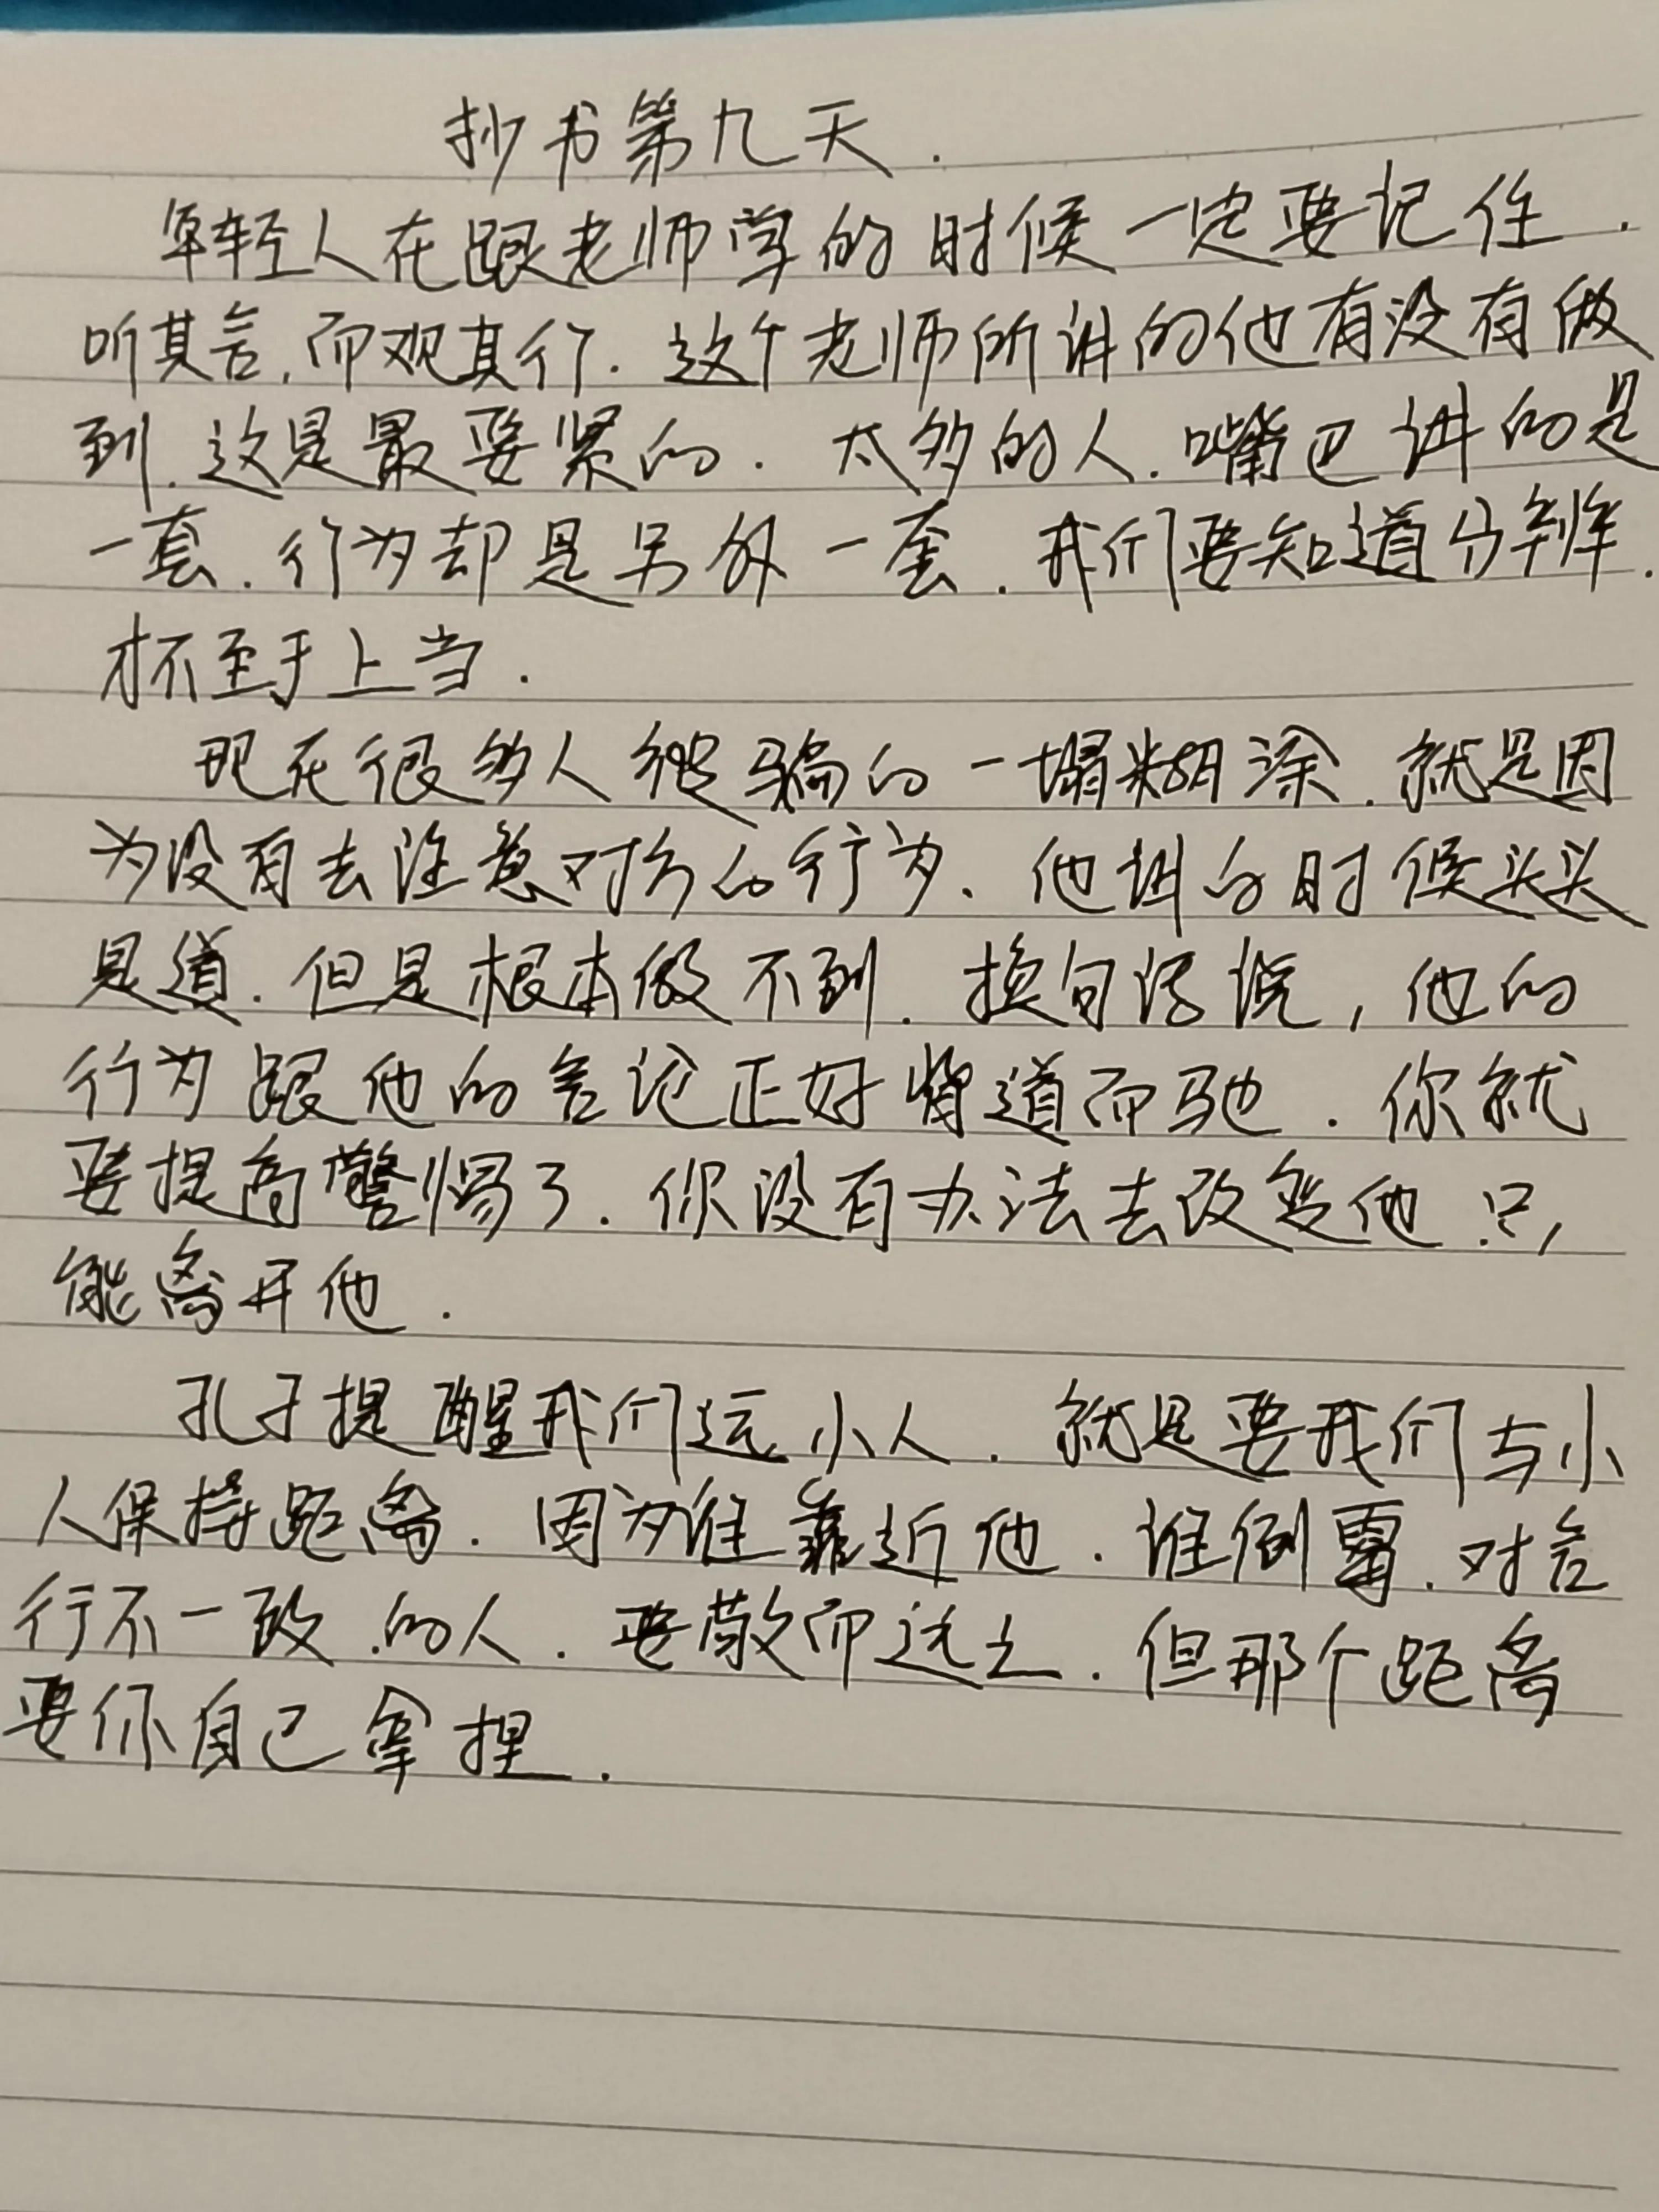 抄书第九天.
年轻人在跟老师学的时候一定要记住.
听其言,而观其行.这个老师所讲的他有没有做
到.这是最要紧的.太多的人.嘴巴讲的是
一套.行为却是另外一套.我们要知道分辨.
才不至于上当.
现在很多人被骗的一塌糊涂.就是因
为没有去注意对方的行为、他讲的时候头头
是道.但是根本做不到.换句话说,他的
行为跟他的言论正好背道而驰.你就
要提高警惕了.你没有办法去改变他.只
能离开他.
孔子提醒我们远小人.就是要我们与小
人保持距离.因为谁靠近他.谁倒霉.对言
行不一致.的人.要敬而远之.但那个距离
要你自己拿捏.